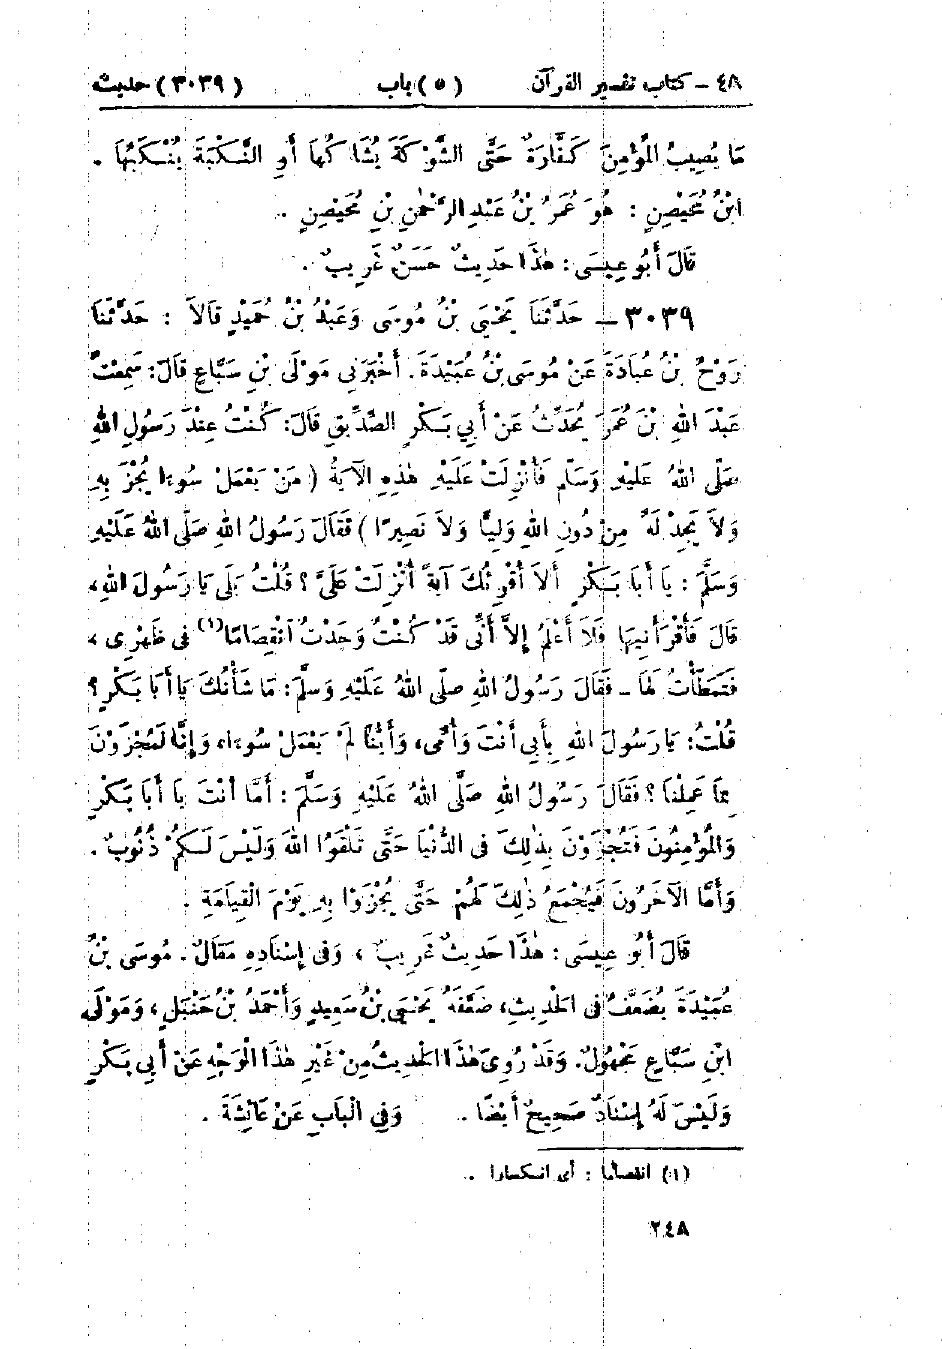 ٤٨ – كتاب تفسير القرآن (٥) باب (٣٠٣٩) حديث
مَا يُصِيبُ الْمُؤْمِنَ كَفَّارَةٌ حَتَّى الشَّوْكَةَ يُشَاكُهَا أَوِ النَّكْبَةَ يُنْكَبُهَا .
ابْنُ مُحَيْصِنٍ : هُوَ عُمَرُ بْنُ عَبْدِ الرَّحْمٰنِ بْنِ مُحَيْصِنٍ .
قَالَ أَبُو عِيسَى : هٰذَا حَدِيثٌ حَسَنٌ غَرِيبٌ .
٣٠٣٩ – حَدَّثَنَا يَحْيَى بْنُ مُوسَى وَعَبْدُ بْنُ حُمَيْدٍ قَالاَ : حَدَّثَنَا
رَوْحُ بْنُ عُبَادَةَ عَنْ مُوسَى بْنُ عُبَيْدَةَ . أَخْبَرَنِي مَوْلَى بْنِ سَبَّاعٍ قَالَ : سَمِعْتُ
عَبْدَ اللهِ بْنَ عُمَرَ يُحَدِّثُ عَنْ أَبِي بَكْرٍ الصِّدِّيقِ قَالَ : كُنْتُ عِنْدَ رَسُولِ اللهِ
صَلَّى اللهُ عَلَيْهِ وَسَلَّمَ فَأُنْزِلَتْ عَلَيْهِ هٰذِهِ الآيَةُ ( مَنْ يَعْمَلْ سُوءًا يُجْزَ بِهِ
وَلاَ يَجِدْ لَهُ مِنْ دُونِ اللهِ وَلِيًّا وَلاَ نَصِيرًا ) فَقَالَ رَسُولُ اللهِ صَلَّى اللهُ عَلَيْهِ
وَسَلَّمَ : يَا أَبَا بَكْرٍ أَلاَ أُقْرِئُكَ آيَةً أُنْزِلَتْ عَلَيَّ ؟ قُلْتُ بَلَى يَا رَسُولَ اللهِ ،
قَالَ فَأَقْرَأَنِيهَا فَلاَ أَعْلَمُ إِلاَّ أَنِّي قَدْ كُنْتُ وَجَدْتُ انْقِصَامًا(١) فِي ظَهْرِي ،
فَتَمَطَّأْتُ لَهَا – فَقَالَ رَسُولُ اللهِ صَلَّى اللهُ عَلَيْهِ وَسَلَّمَ : مَا شَأْنُكَ يَا أَبَا بَكْرٍ ؟
قُلْتُ : يَا رَسُولَ اللهِ بِأَبِي أَنْتَ وَأُمِّي ، وَأَيُّنَا لَمْ يَعْمَلْ سُوءًا ، وَإِنَّا لَمُجْزَوْنَ
بِمَا عَمِلْنَا ؟ فَقَالَ رَسُولُ اللهِ صَلَّى اللهُ عَلَيْهِ وَسَلَّمَ : أَمَّا أَنْتَ يَا أَبَا بَكْرٍ
وَالْمُؤْمِنُونَ فَتُجْزَوْنَ بِذٰلِكَ فِي الدُّنْيَا حَتَّى تَلْقَوُا اللهَ وَلَيْسَ لَكُمْ ذُنُوبٌ .
وَأَمَّا الآخَرُونَ فَيُجْمَعُ ذٰلِكَ لَهُمْ حَتَّى يُجْزَوْا بِهِ يَوْمَ الْقِيَامَةِ .
قَالَ أَبُو عِيسَى : هٰذَا حَدِيثٌ غَرِيبٌ ، وَفِي إِسْنَادِهِ مَقَالٌ . مُوسَى بْنُ
عُبَيْدَةَ يُضَعَّفُ فِي الْحَدِيثِ ، ضَعَّفَهُ يَحْيَى بْنُ سَعِيدٍ وَأَحْمَدُ بْنُ حَنْبَلٍ ، وَمَوْلَى
ابْنِ سَبَّاعٍ مَجْهُولٌ . وَقَدْ رُوِيَ هٰذَا الْحَدِيثُ مِنْ غَيْرِ هٰذَا الْوَجْهِ عَنْ أَبِي بَكْرٍ
وَلَيْسَ لَهُ إِسْنَادٌ صَحِيحٌ أَيْضًا . وَفِي الْبَابِ عَنْ عَائِشَةَ .
(١) انقصاما : أى انكسارا .
٢٤٨